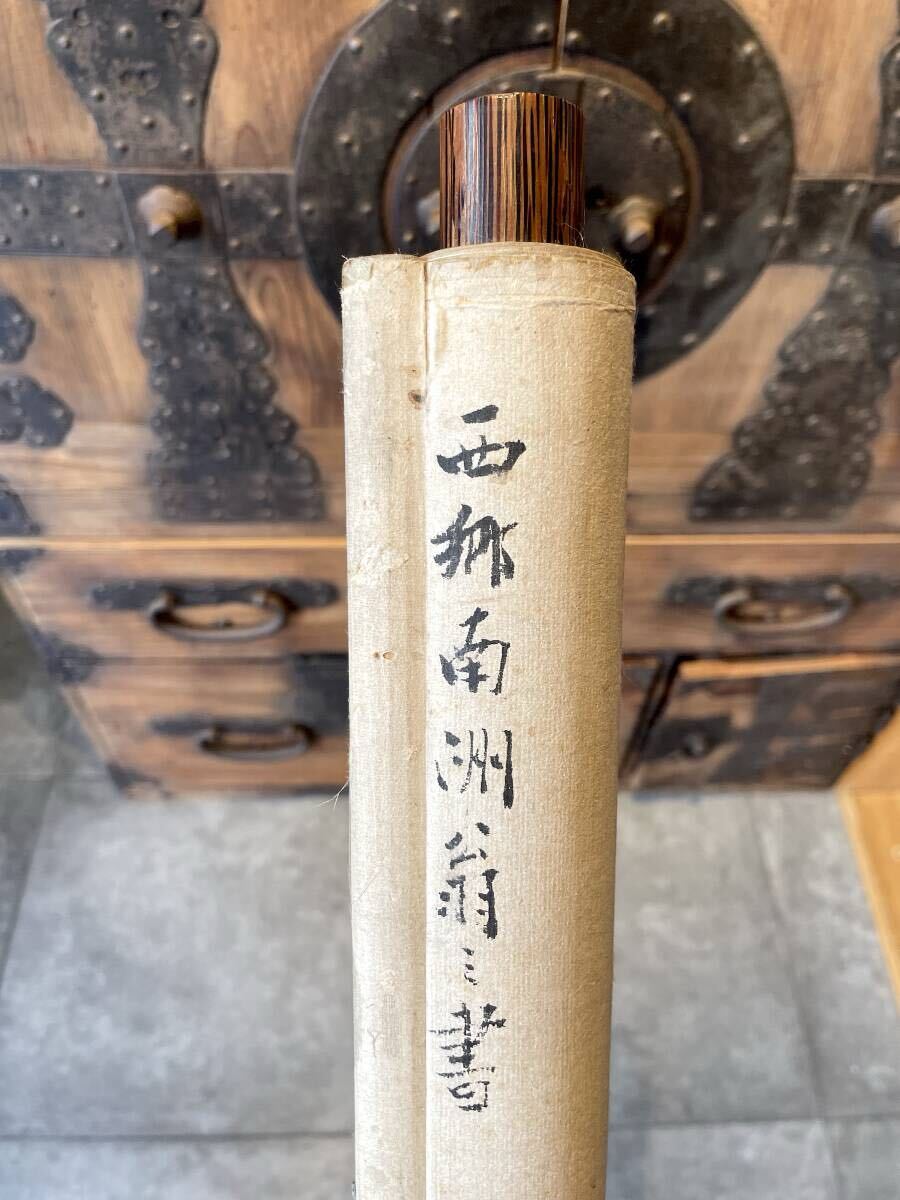 西郷南洲翁之書